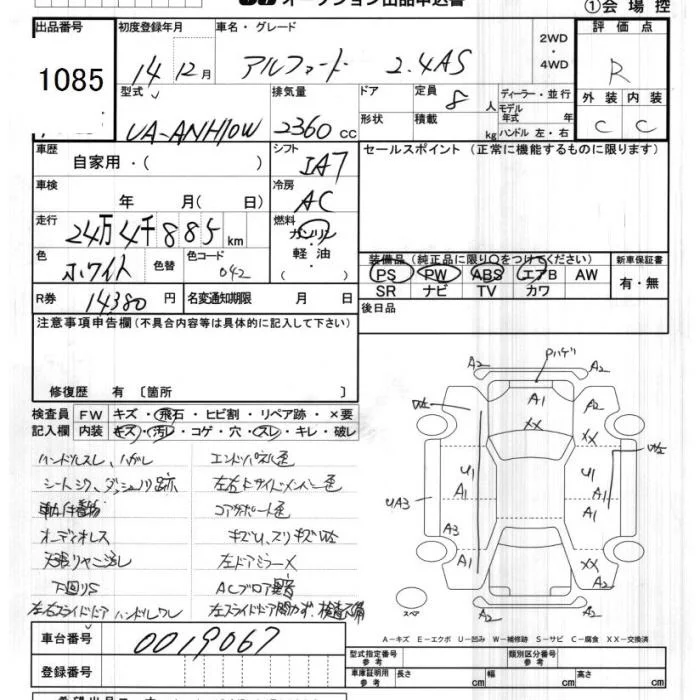 オークション出品申込書
①会場控
出品番号 初度登録年月 車名・グレード 2WD・4WD 評価点
1085 14年12月 アルファード 2.4AS R
型式 排気量 ドア 定員 8人 ディーラー・並行 外装 内装
UA-ANH10W 2360cc 形状 積載 kg モデル年式 年 ハンドル 左・右 C C
車歴 自家用・( ) シフト IA7 セールスポイント (正常に機能するものに限ります)
車検 年 月( 日) 冷房 AC
走行 24万4千885km 燃料 ガソリン・軽油・( )
装備品(純正品に限り○をつけてください) 新車保証書
色 ホワイト 色替 色コード 042 PS PW ABS エアB AW 有・無
SR ナビ TV カワ
R券 14380円 名変通知期限 月 日 後日品
注意事項申告欄(不具合内容等は具体的に記入して下さい)
修復歴 有〔箇所 〕
検査員 FW キズ・飛石・ヒビ割・リペア跡・×要
記入欄 内装 キズ・汚レ・コゲ・穴・スレ・キレ・破レ
ハンドルスレ、ハガレ エンドパネル色
左右サイドメンバー色
コアサポート色
オーディオレス
左ドアミラーX
下回りS
左右スライドドアハンドルワレ
車台番号 0019067
登録番号
A2 Pハゲ A2
A1 A2
XX XX
U1 U1
A1 A1
UA3 A1
A3
A1 XX
A2 A2
スペア
A-キズ E-エクボ U-凹み W-補修跡 S-サビ C-腐食 XX-交換済
型式指定番号 参考 類別区分番号 参考
車庫証明用 参考 長さ cm 幅 cm 高さ cm